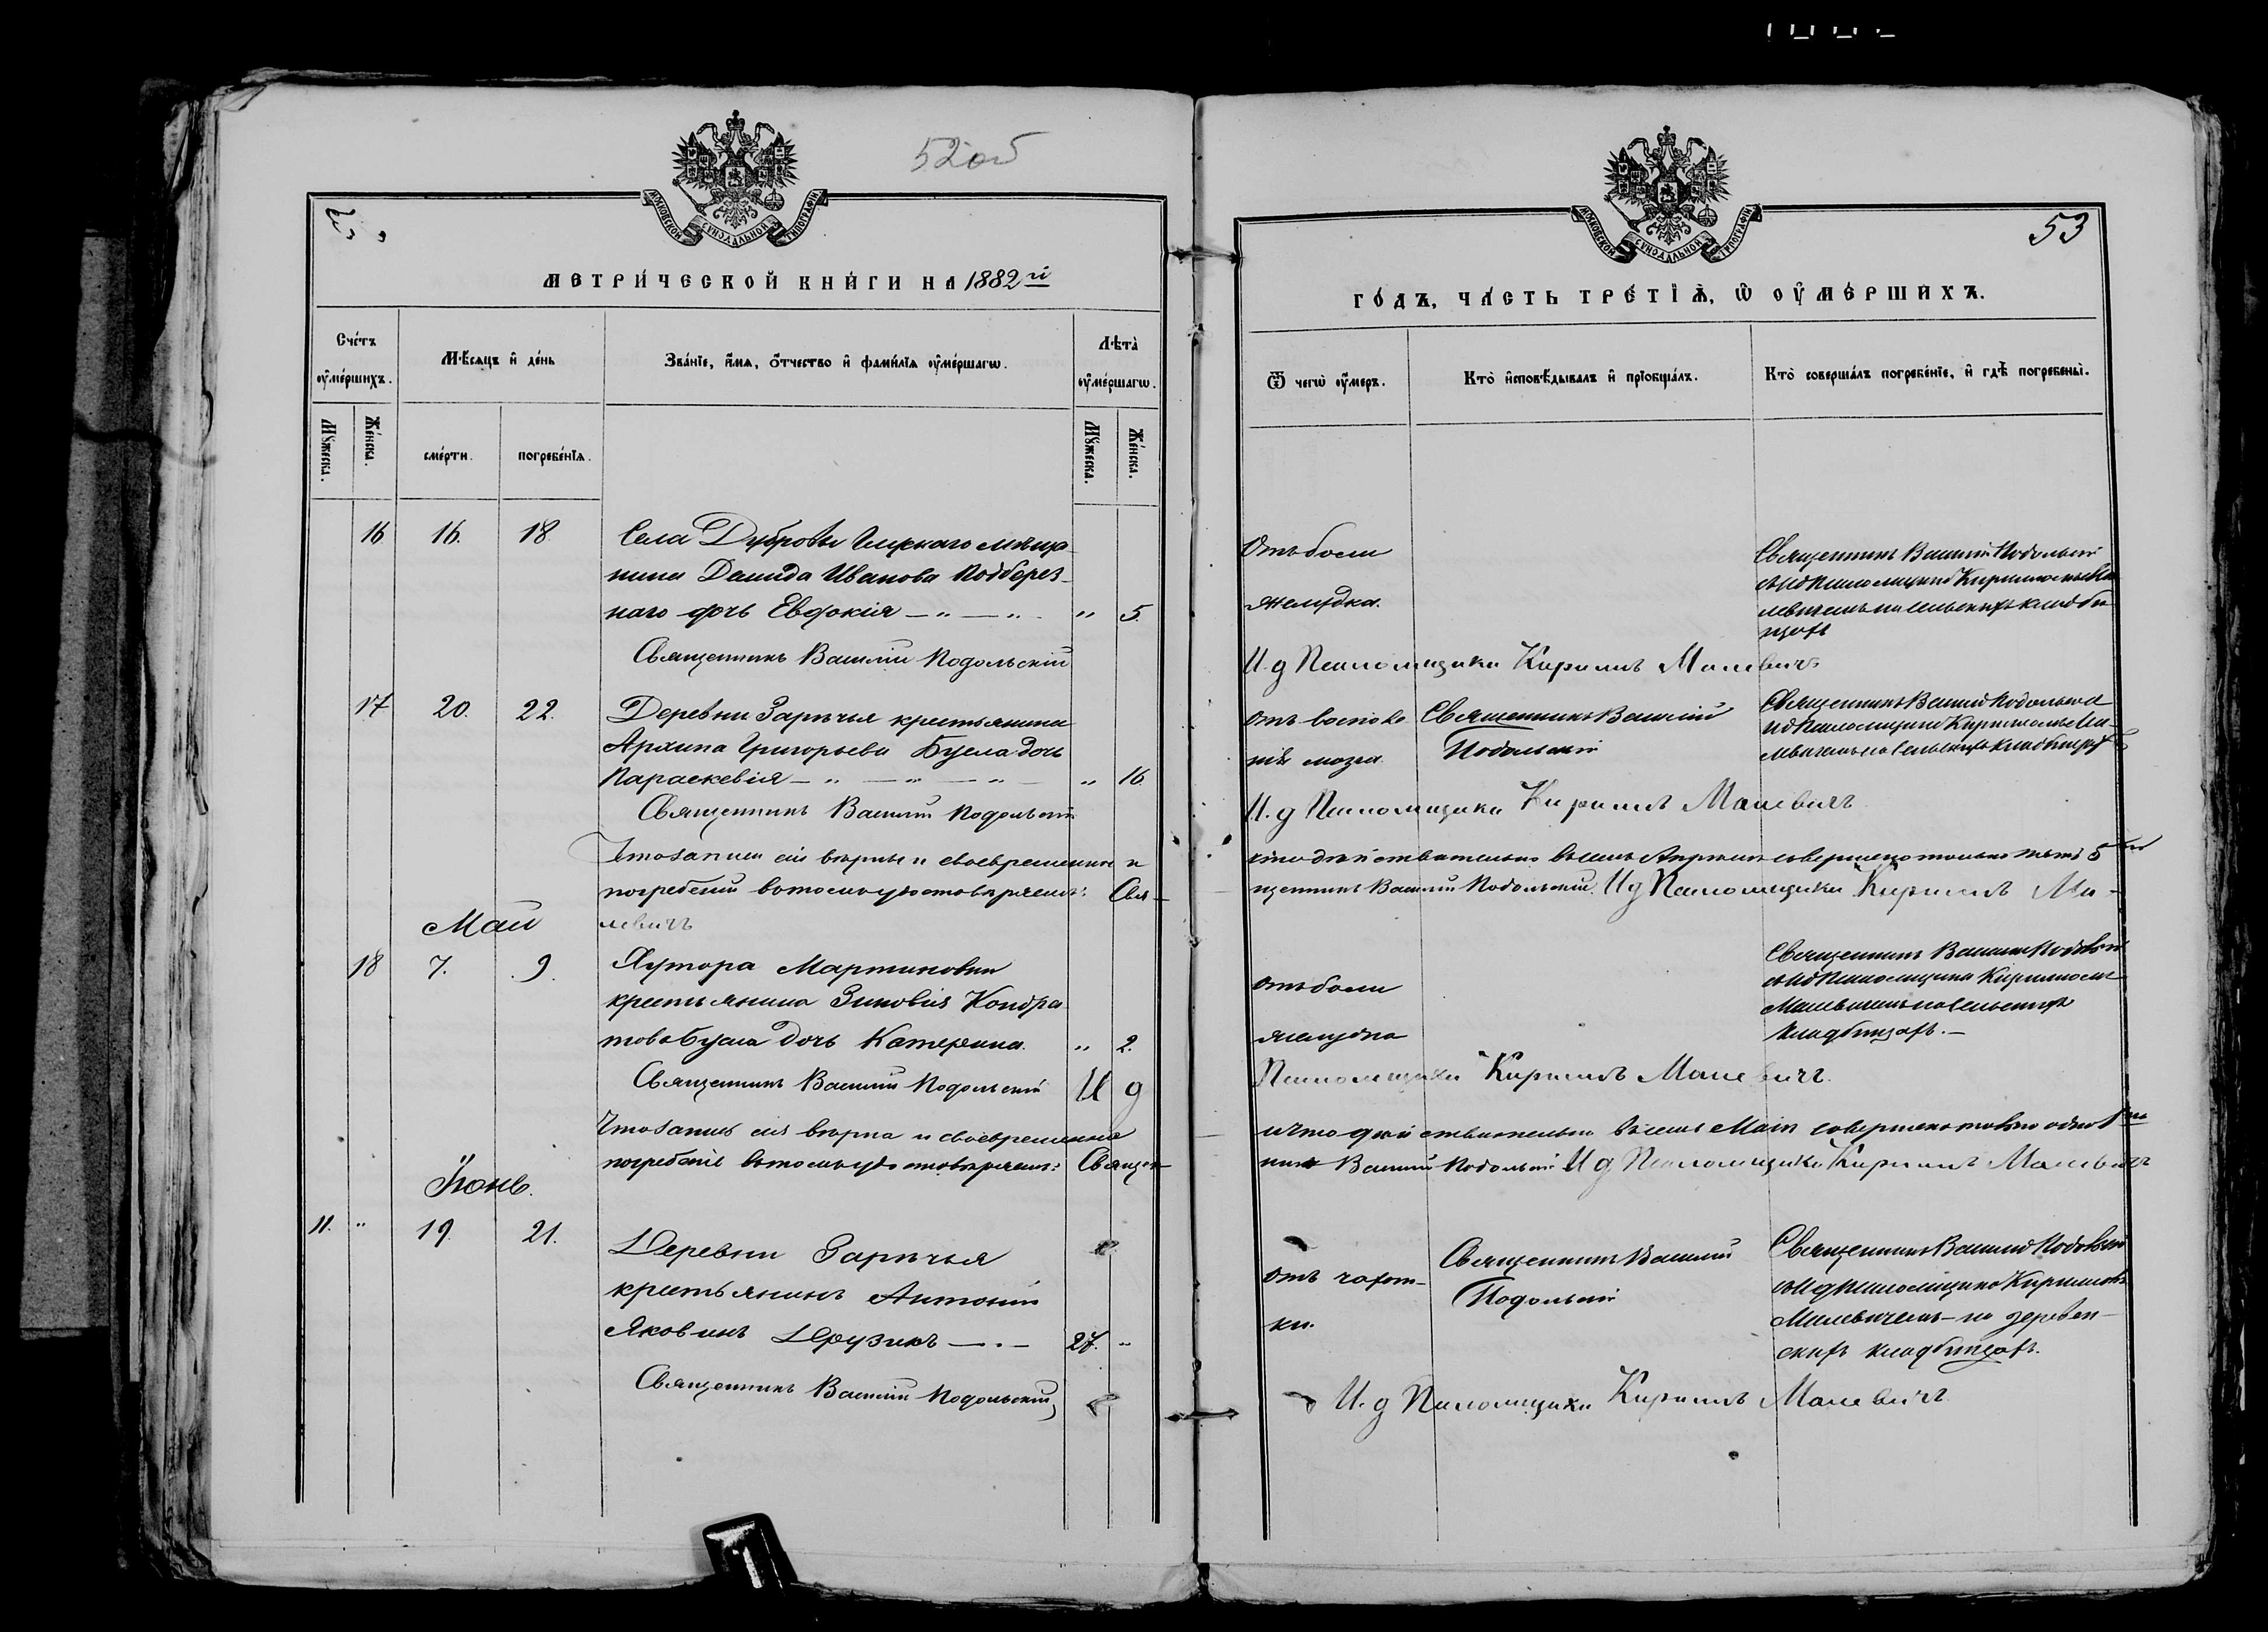 52 об
МОСКОВСКОЙ СѴНОДАЛЬНОЙ ТИПОГРАФІИ
МЕТРИ́ЧЕСКОЙ КНИ́ГИ НА 1882 й
Сче́тъ ᲂу҆ме́ршихъ.
Мѣ́сяцъ и҆ де́нь
Зва́нїе, и҆́мѧ, ѻ҆́тчество и҆ фами́лїѧ ᲂу҆ме́ршагѡ.
Лѣта̀ ᲂу҆ме́ршагѡ.
Мꙋ́жеска.
Же́нска.
сме́рти.
погребе́нїѧ.
Мꙋ́жеска.
Же́нска.
16 16. 18 Села Дубровы мѣща-
нина Давида Иванова Подберез-
наго дочь Евдокія — „ — „ „ 5.
Священникъ Василій Подольскій
17 20. 22. Деревни Зарѣчья крестьянина
Архипа Григорьева Бусла дочь
Параскевія — „ — „ — „ — „ 16.
Священникъ Василій Подольскій
Что записи сіи вѣрны и своевременны и
погребеніи въ томъ удостовѣряемъ: Свя-
левичъ
Май
18 7. 9. Хутора Мартиновки
крестьянина Зиновія Кондра-
това Бусла дочь Катерина. „ 2.
Священникъ Василій Подольскій И д
Что запись сія вѣрна и своевременна
погребеніе въ томъ удостовѣряемъ: Священ-
Іюнь.
11. „ 19. 21. Деревни Зарѣчья
крестьянинъ Антоній
Яковинъ Друзикъ — . — 27. „
Священникъ Василій Подольскій
53
МОСКОВСКОЙ СѴНОДАЛЬНОЙ ТИПОГРАФІИ
ГО́ДЪ, ЧА́СТЬ ТРЕ́ТЇѦ, Ѡ҆ ОУ҆МЕ́РШИХЪ.
Ѿ чегѡ̀ ᲂу҆́меръ.
Кто̀ и҆сповѣ́дывалъ и҆ прїѡбща́лъ.
Кто̀ соверша́лъ погребе́нїе, и҆ гдѣ̀ погребены̀.
Отъ боли
желудка.
Священникъ Василій Подольскій
съ И д Псаломщика Кирилломъ Ма-
левичемъ на сельскихъ кладби-
щахъ
И. д Псаломщика Кириллъ Малевичъ
отъ воспале-
нія мозга
Священникъ Василій
Подольскій
Священникъ Василій Подольскій съ
И д Псаломщика Кирилломъ Ма-
левичемъ на сельскихъ кладбищахъ
И. д Псаломщика Кириллъ Малевичъ
что дѣйствительно въ семъ Апрѣлѣ совершено только пять 5
щенникъ Василій Подольскій. И д Псаломщика Кириллъ Ма-
отъ боли
желудка
Священникъ Василій Подольскій
съ И д Псаломщика Кирилломъ
Малевичемъ на сельскихъ
кладбищахъ. —
Псаломщика Кириллъ Малевичъ.
и что дѣйствительно въ семъ Маѣ совершено только одно 1
никъ Василій Подольскій И д Псаломщика Кириллъ Малевичъ
отъ чахот-
ки.
Священникъ Василій
Подольскій
Священникъ Василій Подольскій
съ И д Псаломщика Кирилломъ
Малевичемъ — на деревен-
скихъ кладбищахъ.
И. д Псаломщика Кириллъ Малевичъ